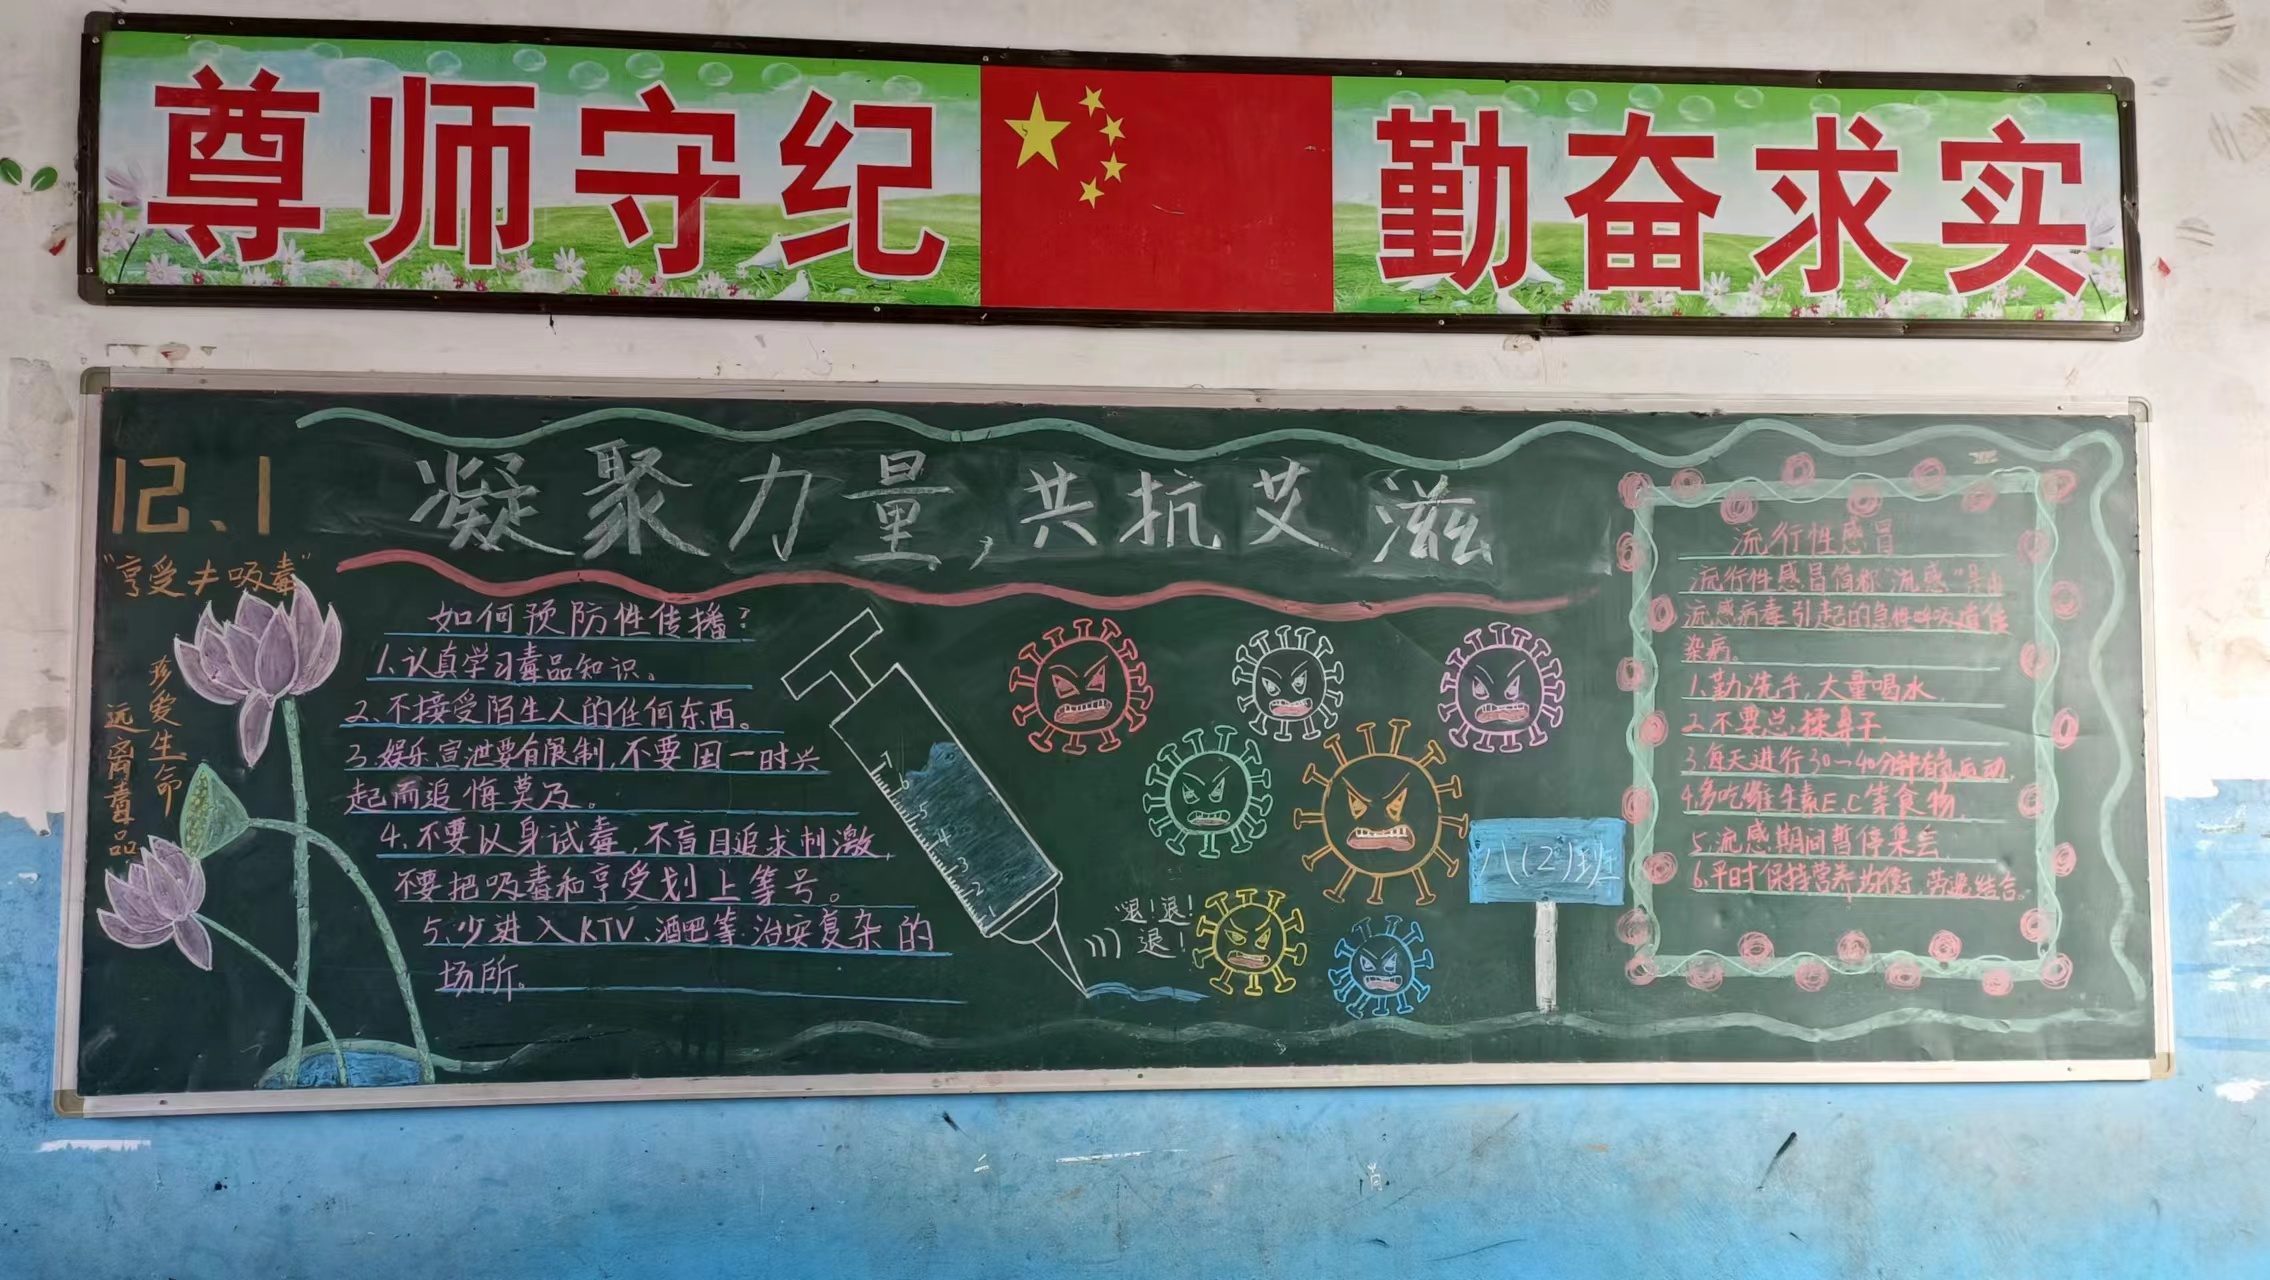 尊师守纪 勤奋求实
12、1
凝聚力量，共抗艾滋
"享受≠吸毒"
珍爱生命
远离毒品
如何预防性传播？
1、认真学习毒品知识。
2、不接受陌生人的任何东西。
3、娱乐宣泄要有限制，不要因一时兴
起而追悔莫及。
4、不要以身试毒，不盲目追求刺激，
不要把吸毒和享受划上等号。
5、少进入KTV、酒吧等治安复杂的
场所。
7
6
5
4
3
2
1
"退！退！
退！
八(2)班
流行性感冒
流行性感冒简称"流感"是由
流感病毒引起的急性呼吸道传
染病。
1、勤洗手，大量喝水
2、不要总揉鼻子
3、每天进行30—40分钟有氧运动
4、多吃维生素E、C等食物
5、流感期间暂停集会
6、平时保持营养均衡，劳逸结合。